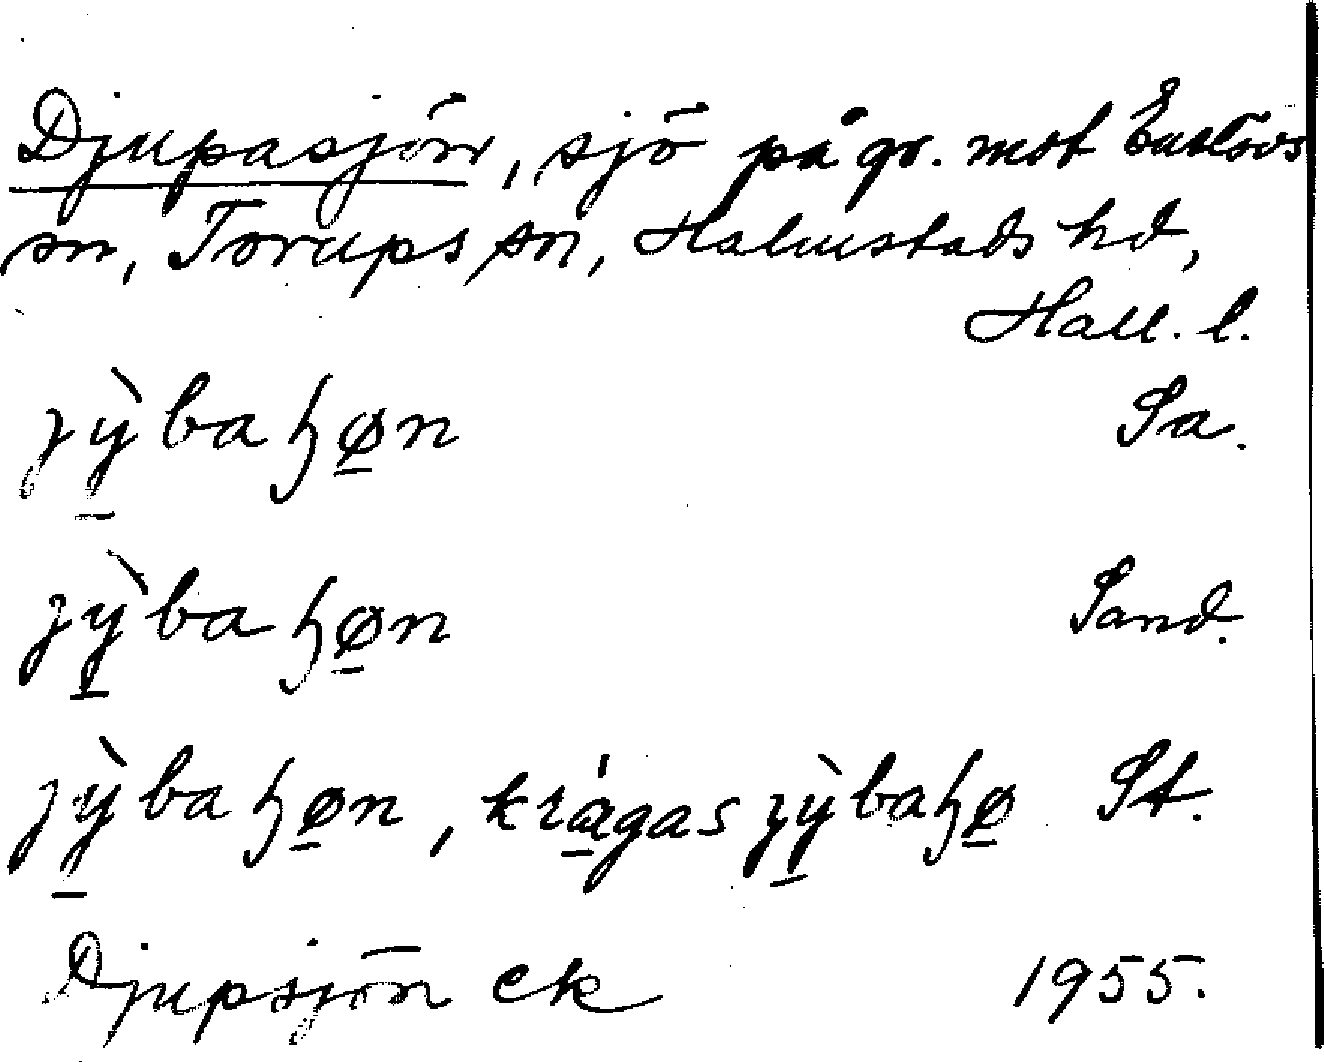 Djupasjön, sjö på gr. mot Enslövs
sn, Torups sn, Halmstads hd,
Hall. l.
jỳ̠baɧø̠n Sa.
jỳ̠baɧø̠n Sand.
jỳ̠baɧø̠n, krá̠gas jỳ̠baɧø̠ St.
Djupsjön ek 1955.